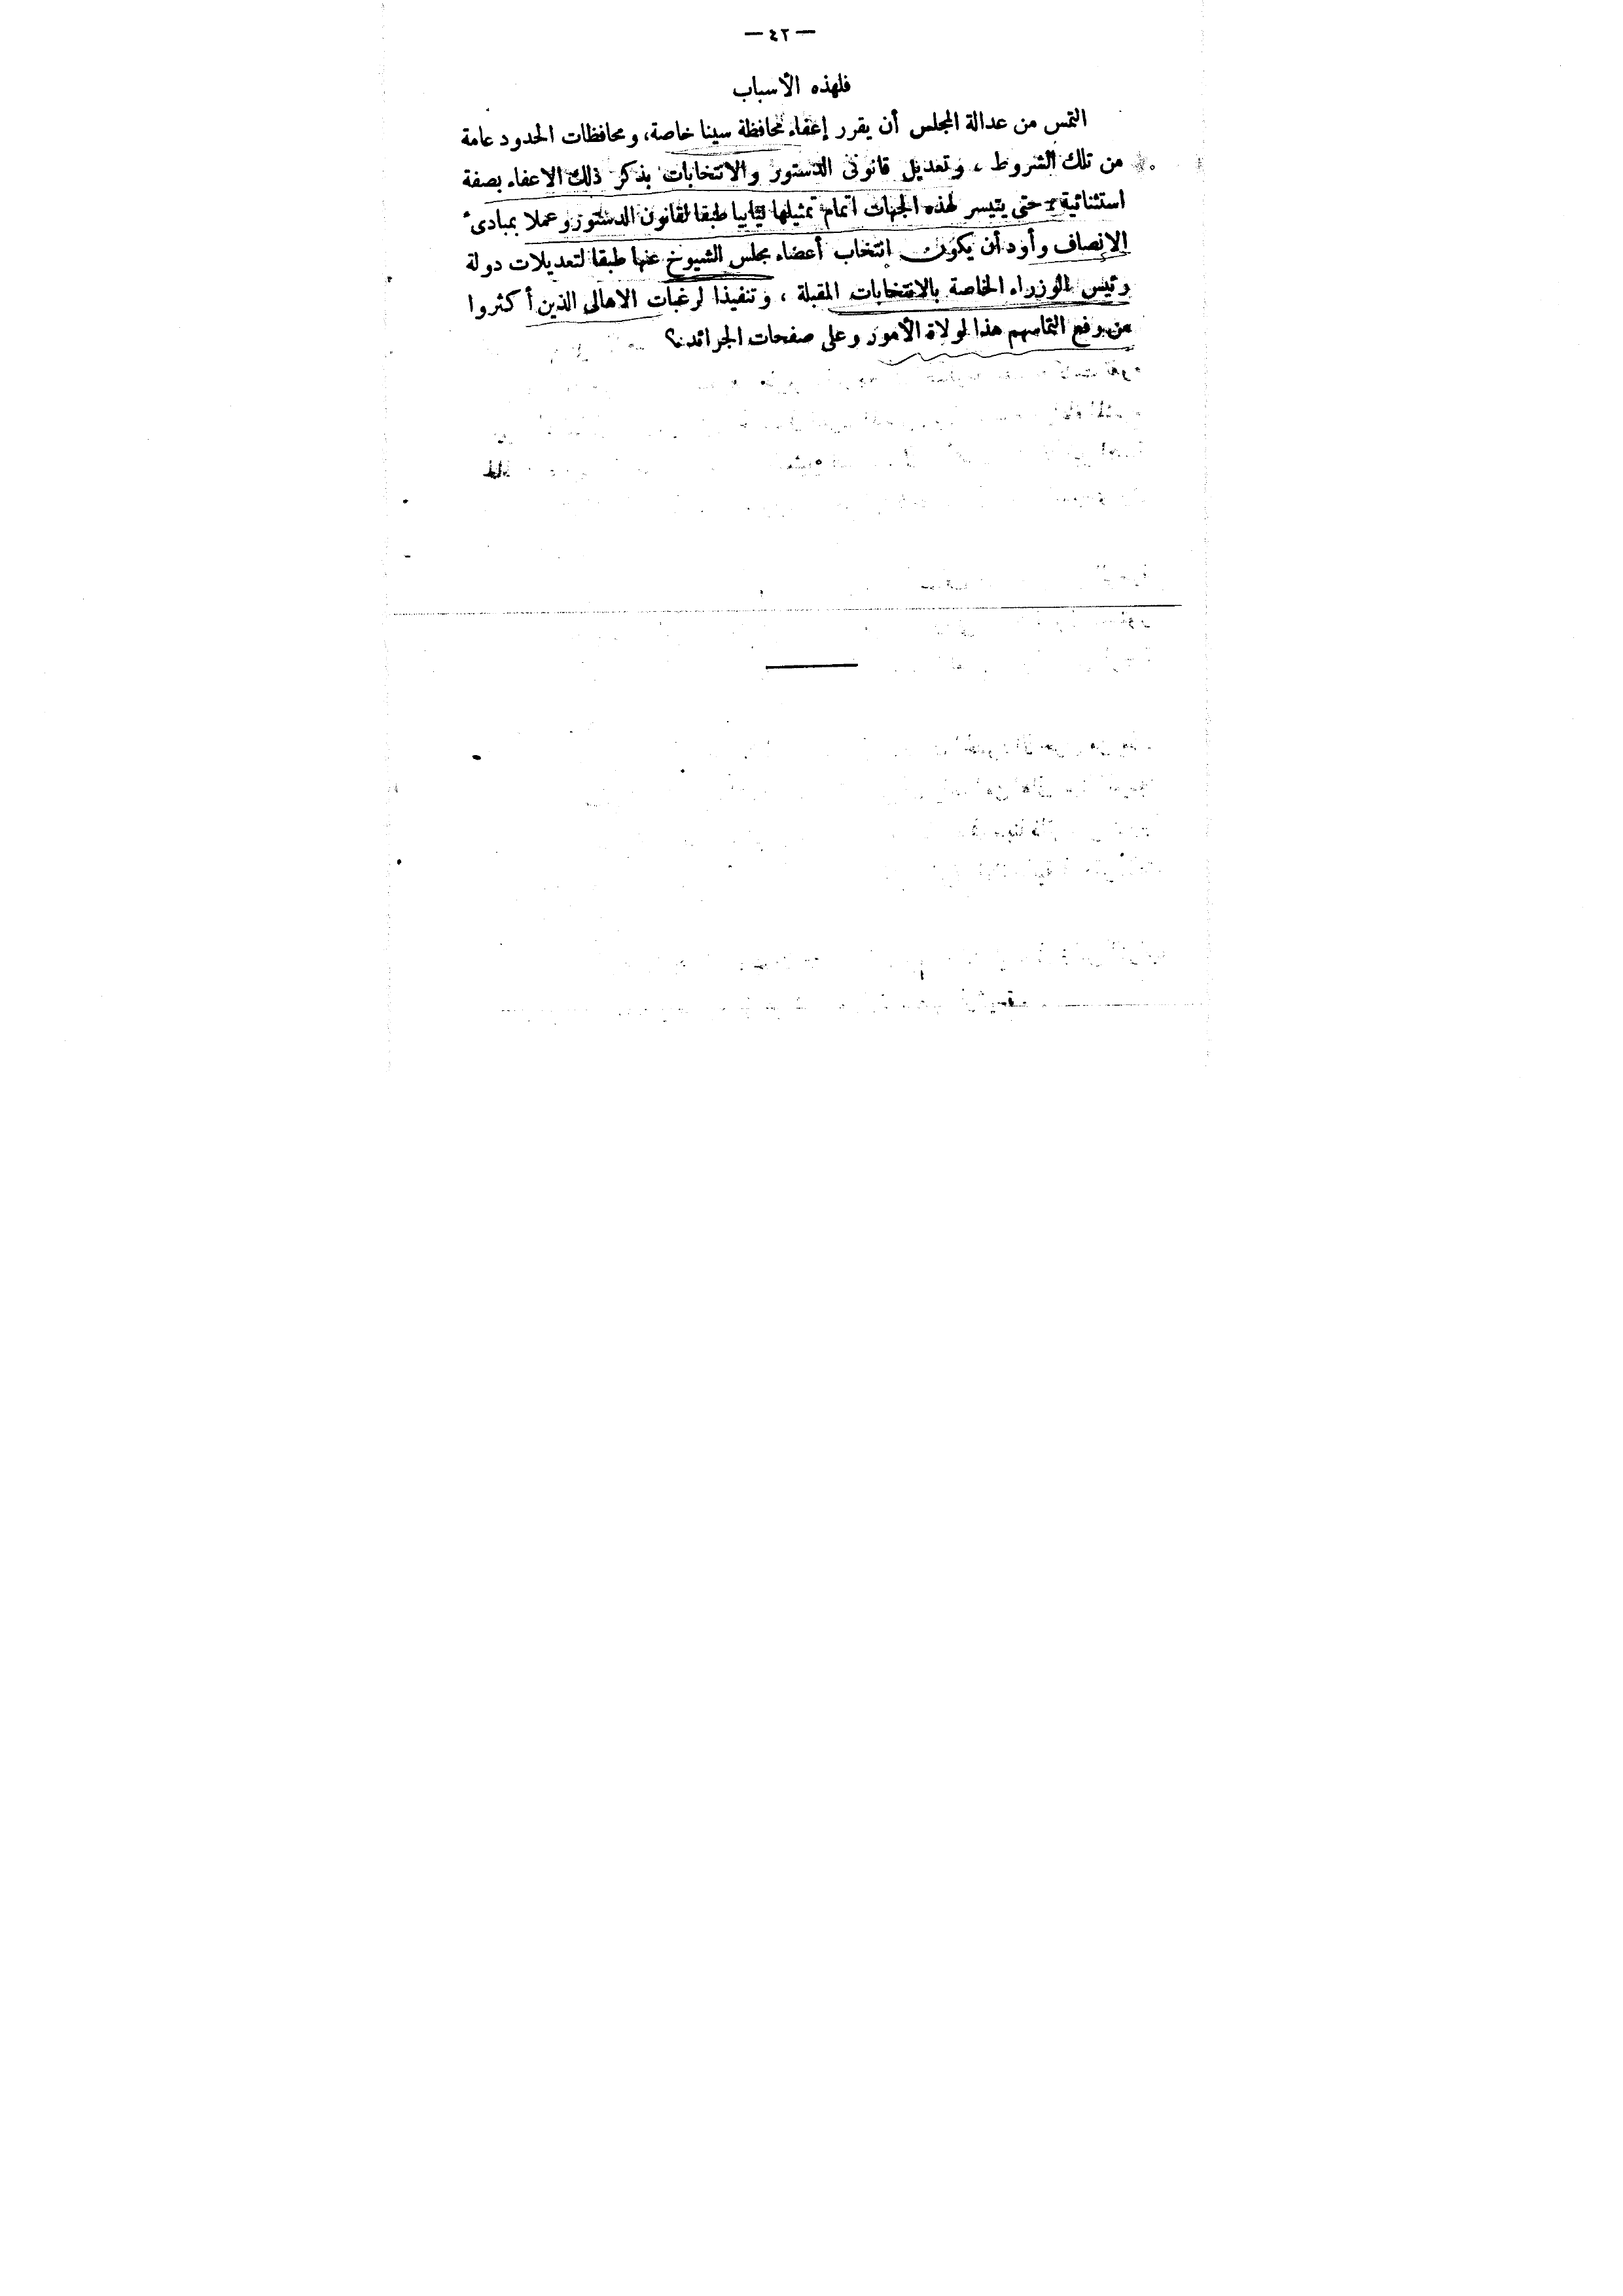 — ٤٢ —
فلهذه الأسباب
التمس من عدالة المجلس أن يقرر إعفاء محافظة سينا خاصة، ومحافظات الحدود عامة
من تلك الشروط ، وتعديل قانونى الدستور والانتخابات بذكر ذلك الاعفاء بصفة
استثنائية حتى يتيسر لهذه الجهات اتمام تمثيلها نيابيا طبقا لقانون الدستور وعملا بمبادئ
الإنصاف وأود أن يكون انتخاب أعضاء مجلس الشيوخ عنها طبقا لتعديلات دولة
رئيس الوزراء الخاصة بالانتخابات المقبلة ، وتنفيذا لرغبات الاهالى الذين أكثروا
من رفع التماسهم هذا لولاة الأمور وعلى صفحات الجرائد ؟